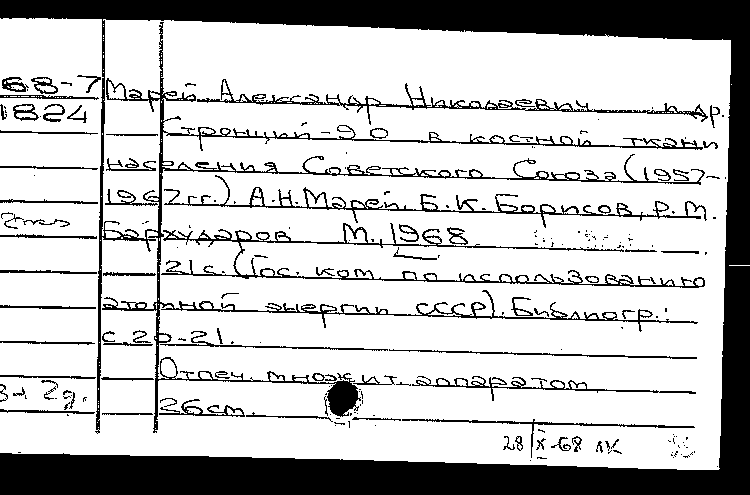 68-7 Марей Александр Николаевич и др.
1824 Стронций-90 в костной ткани
населения Советского Союза (1957-
1967гг.). А.Н.Марей, Б.К.Борисов, Р.М.
Бархударов М., 1968.
21с. (Гос. ком. по использованию
атомной энергии СССР). Библиогр.:
с.20-21.
Отпеч. множит. аппаратом
26см.
28/X-68 ЛК